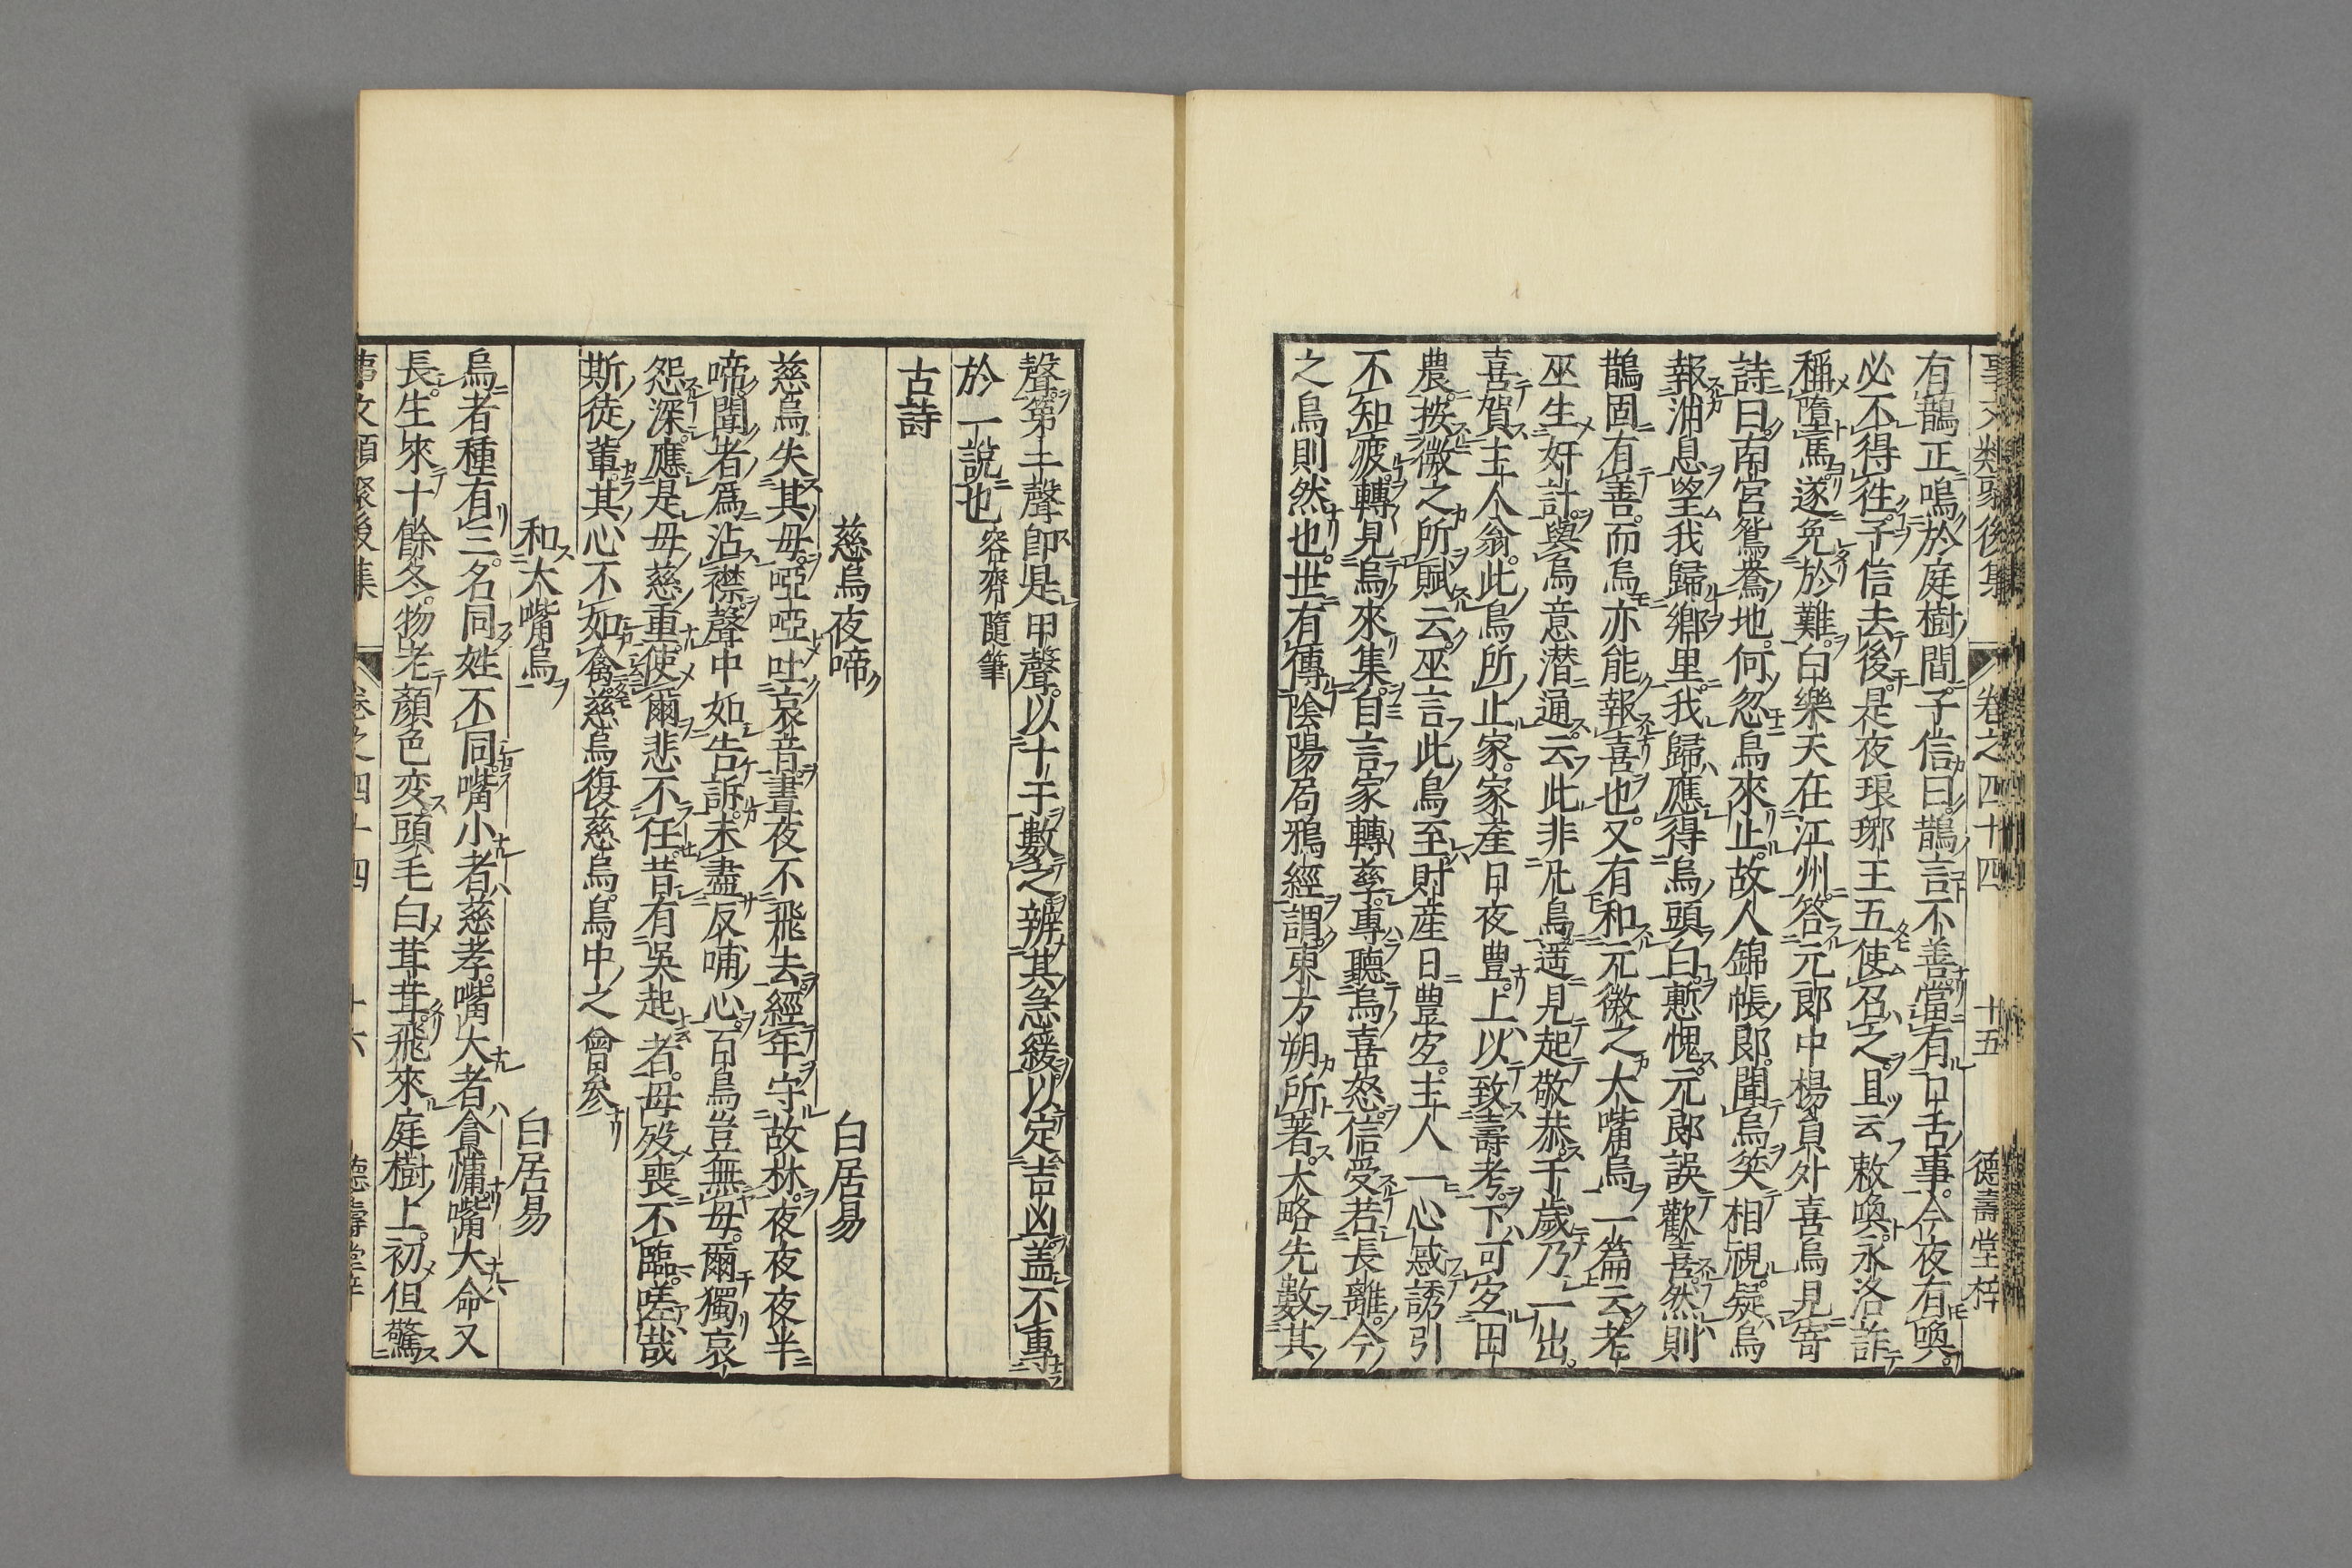 事文類聚後集 卷之四十四 十五 德壽堂梓
有鵲正鳴於庭樹間子信曰鵲言不善當有口舌事今夜有喚
必不得徃子信去後是夜琅瑯王五使召之且云敕喚永洛詐
稱墮馬遂免於難白樂天在江州答元郎中楊負外喜烏見寄
詩曰南宮鴛鴦地何忽烏來止故人錦帳郎聞烏笑相視疑烏
報消息望我歸鄉里我歸應得烏頭白慙愧元郎誤歡喜然則
鵲固有善而烏亦能報喜也又有和元微之大嘴烏一篇云老
巫生奸計與烏意潜通云此非凡鳥遥見起敬恭千歲乃一出
喜賀主人翁此烏所止家家產日夜豊上以致壽考下可宜田
農按微之所賦云巫言此烏至財產日豊宜主人一心惑誘引
不知疲轉見烏來集自言家轉孳專聽烏喜怒信受若長離今
之烏則然也世有傳陰陽局鴉經謂東方朔所著大略先數其
聲第一聲卽是甲聲以十干數之辨其急緩以定吉凶盖不專
於一說也 容齋隨筆
古詩
慈烏夜啼 白居易
慈烏失其母啞啞吐哀音晝夜不飛去經年守故林夜夜夜半
啼聞者爲沾襟聲中如告訴未盡反哺心百鳥豈無母爾獨哀
怨深應是母慈重使爾悲不任昔有吳起者母歿喪不臨嗟哉
斯徒輩其心不如禽慈烏復慈烏鳥中之曾參
和大嘴烏 白居易
烏者種有三名同姓不同嘴小者慈孝嘴大者貪慵嘴大命又
長生來十餘冬物老顏色变頭毛白茸茸飛來庭樹上初但驚
事文類聚後集 卷之四十四 十六 德壽堂梓